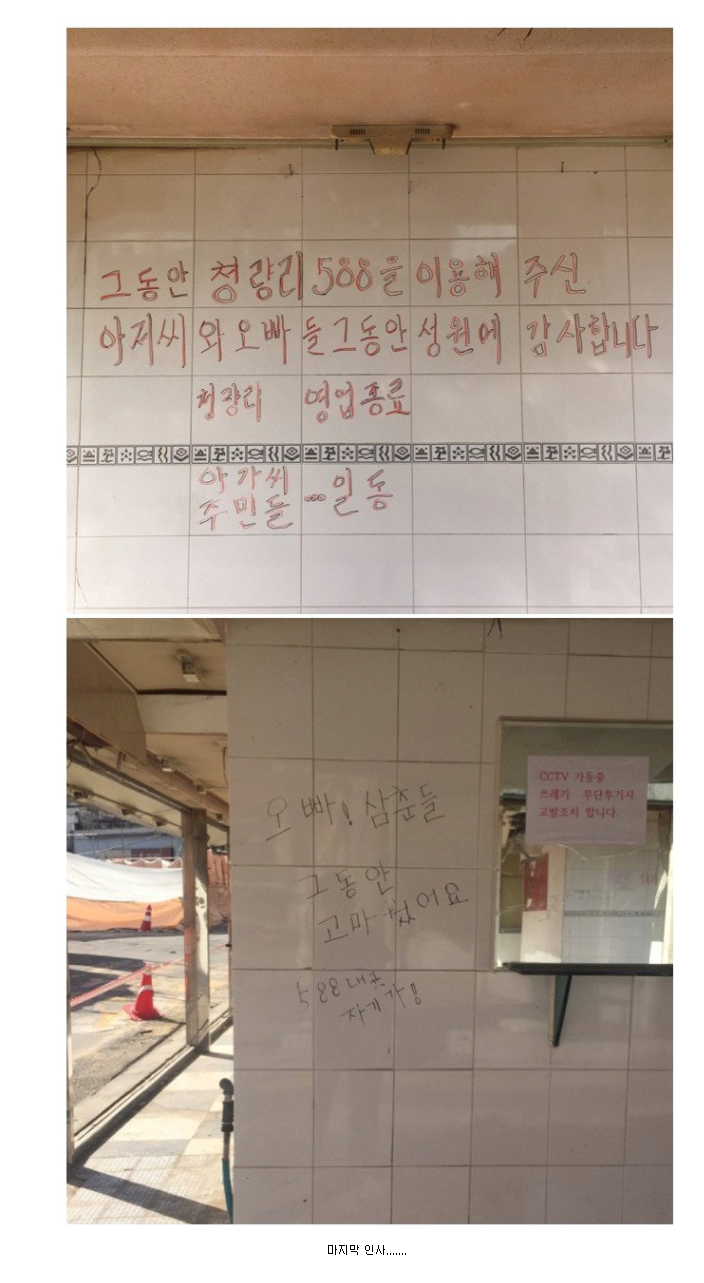 그동안 청량리 588을 이용해 주신
아저씨와 오빠들 그동안 성원에 감사합니다
청량리 영업종료
아가씨
주민들 ...일동
오빠! 삼춘들
그동안
고마웠어요
588 대표
자게가!
CCTV 가동중
쓰레기 무단투기시
고발조치 합니다.
마지막 인사.......